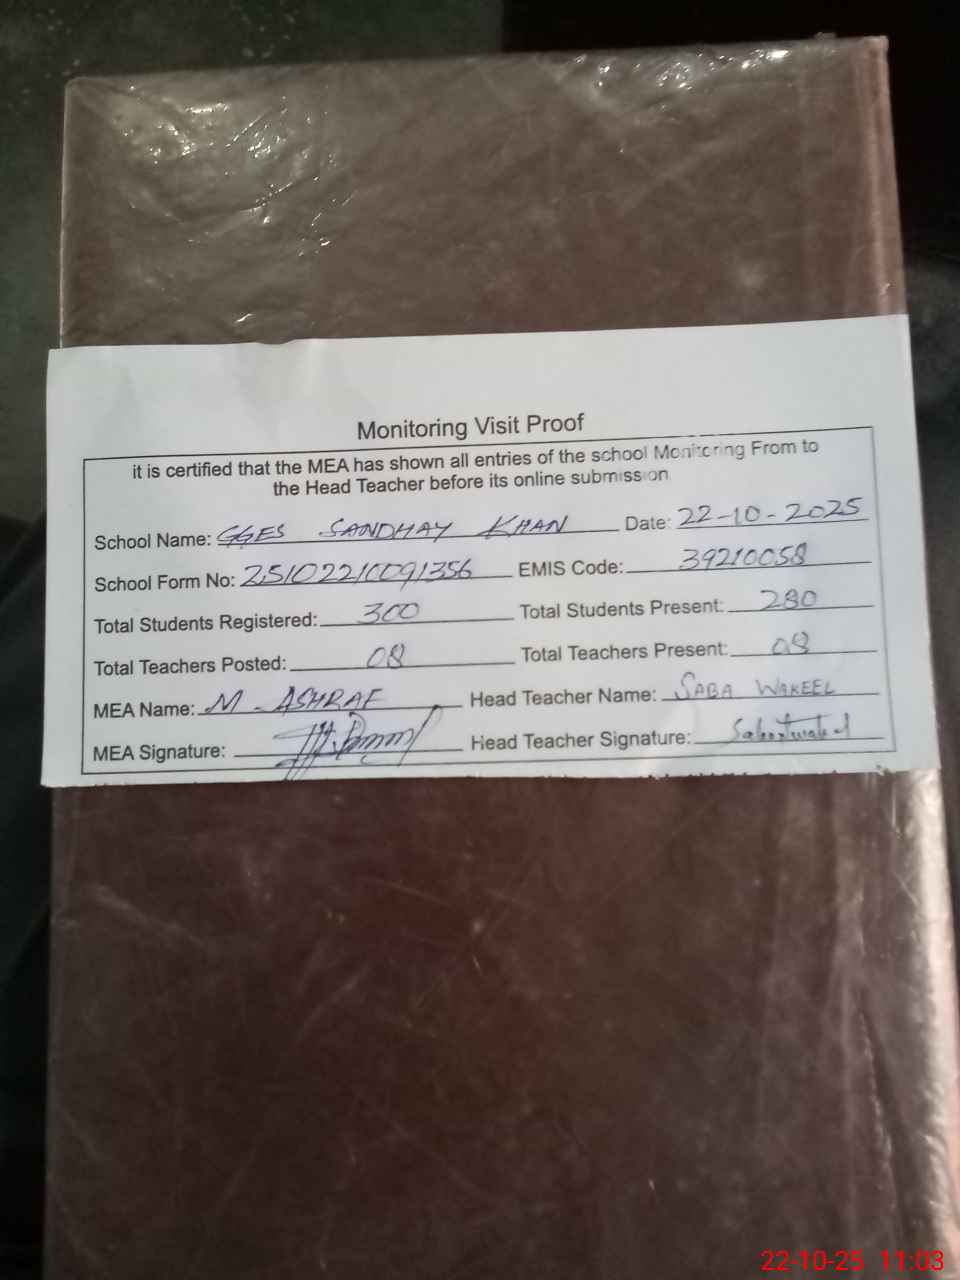 Monitoring Visit Proof
it is certified that the MEA has shown all entries of the school Monitoring From to
the Head Teacher before its online submission
School Name: GGES SANDHAY KHAN Date: 22-10-2025
School Form No: 25102210091356 EMIS Code: 39210058
Total Students Registered: 300 Total Students Present: 280
Total Teachers Posted: 08 Total Teachers Present: 08
MEA Name: M. ASHRAF Head Teacher Name: SABA WAKEEL
MEA Signature: Head Teacher Signature:
22-10-25 11:03